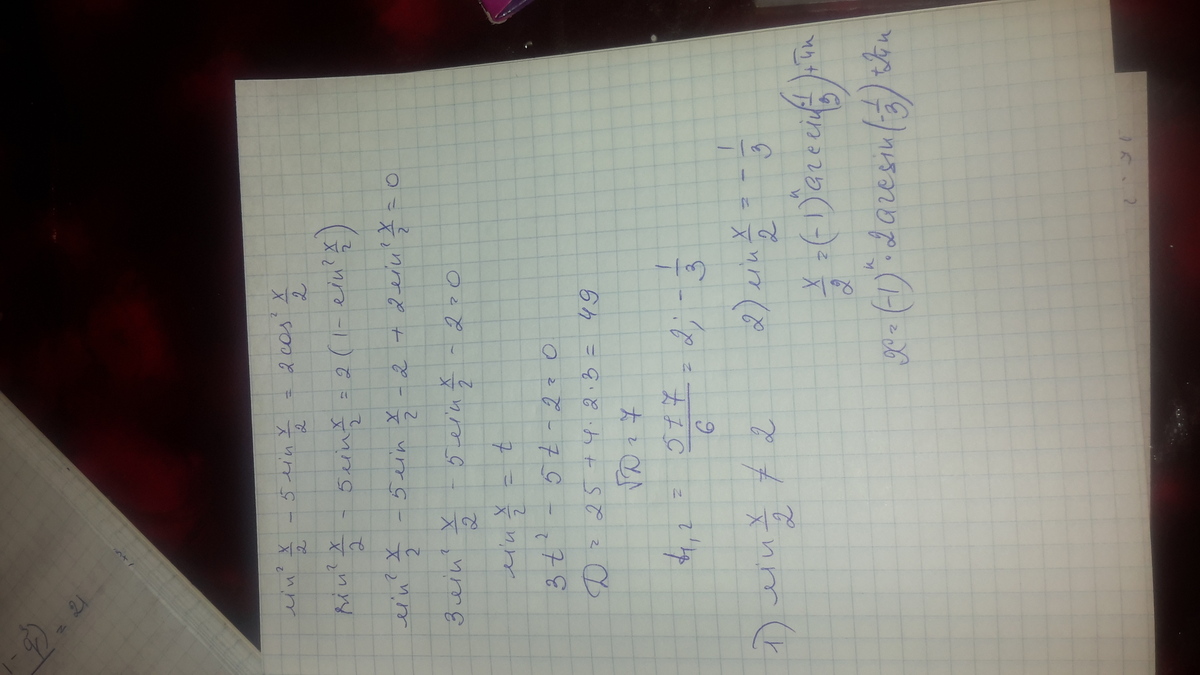 sin² x/2 - 5 sin x/2 = 2 cos² x/2
sin² x/2 - 5 sin x/2 = 2 (1 - sin² x/2)
sin² x/2 - 5 sin x/2 - 2 + 2 sin² x/2 = 0
3 sin² x/2 - 5 sin x/2 - 2 = 0
sin x/2 = t
3t² - 5t - 2 = 0
D = 25 + 4·2·3 = 49
√D = 7
t1,2 = (5 ± 7)/6 = 2; -1/3
1) sin x/2 ≠ 2 2) sin x/2 = - 1/3
x/2 = (-1)ⁿ arcsin(-1/3) + πn
x = (-1)ⁿ · 2 arcsin(-1/3) + 2πn
= 21